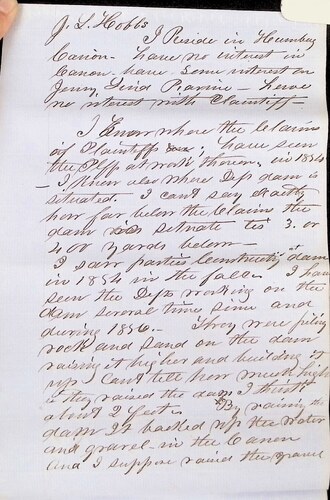 J. L. Hobbs
I Reside in Humbug
Canon - have no interest in
Canon. have some interest on
Jenny Lind Ravine - have
no interest with Plaintiff -
I Know where the Claims
of Plaintiff ; have seen
the Plff at work there in 1854
- I Know also where Dfs dam is
situated - I can't say exactly
how far below the Claims the
dam was setuate tis 3. or
400 yards below -
I saw parties Constructing dam
in 1854 in the fall. I have
seen the Defts working on the
dam several times since and
during 1856. - They were piling
rock and sand on the dam
raising it higher and building it
up. Can't tell how much higher
they raised the dam I think
about 2 feet. By raising the
dam It backed up the water
and gravel in the Canon
and I suppose raised the gravel